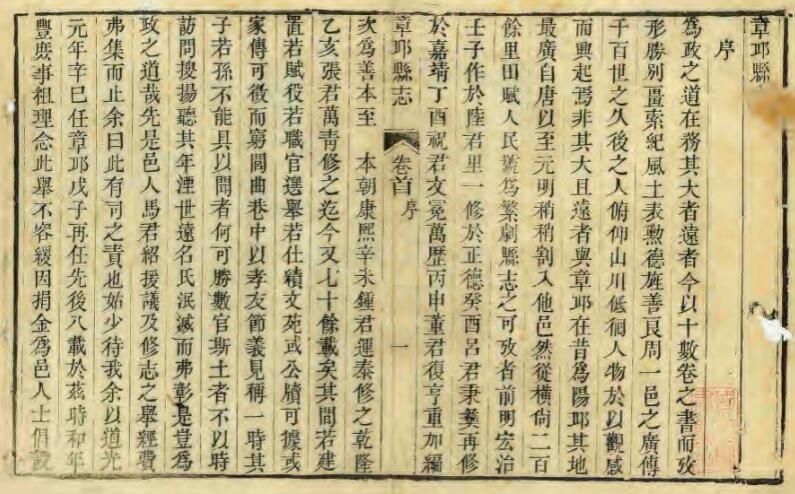 章邱縣
序
為政之道在務其大者遠者今以十數卷之書而攷
形勝別畺索紀風土表勲德旌善良周一邑之廣傳
千百世之久後之人俯仰山川低徊人物於以觀感
而興起焉非其大且遠者與章邱在昔為陽邱其地
最廣自唐以至元明稍稍割入他邑然從橫尙二百
餘里田賦人民號為繁劇縣志之可攷者前明宏治
壬子作於陸君里一修於正德癸酉呂君秉彜再修
於嘉靖丁酉祝君文冕萬歷丙申董君復亨重加編
章邱縣志 卷首 序 一
次為善本至 本朝康熙辛未鍾君運泰修之乾隆
乙亥張君萬青修之迄今又七十餘載矣其間若建
置若賦役若職官選舉若仕績文苑或公牘可據或
家傳可徵而窮閭曲巷中以孝友節義見稱一時其
子若孫不能具以聞者何可勝數官斯土者不以時
訪問搜揚聽其年湮世遠名氏泯滅而弗彰是豈為
政之道哉先是邑人馬君紹援議及修志之舉經費
弗集而止余曰此有司之責也始少待我余以道光
元年辛巳任章邱戊子再任先後八載於茲時和年
豐庶事粗理念此舉不容緩因捐金為邑人士倡設